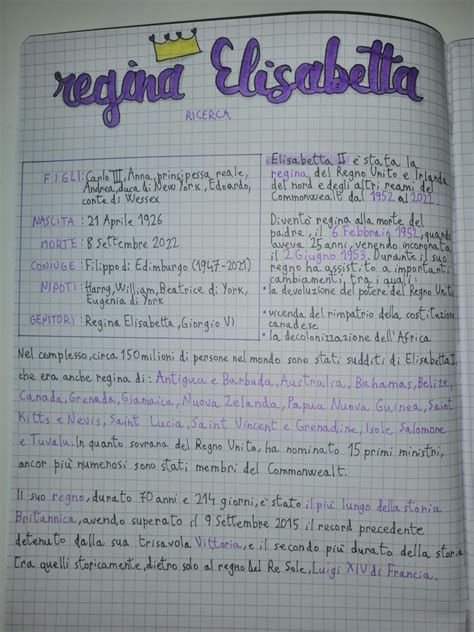 regina Elisabetta
RICERCA
FIGLI: Carlo III, Anna, principessa reale,
Andrea, duca di New York, Edoardo,
conte di Wessex
NASCITA: 21 Aprile 1926
MORTE: 8 Settembre 2022
CONIUGE: Filippo di Edimburgo (1947-2021)
NIPOTI: Harry, William, Beatrice di York,
Eugenia di York
GENITORI: Regina Elisabetta, Giorgio VI
Elisabetta II è stata la
regina, del Regno Unito e Irlanda
del nord e degli altri reami del
Commonwealt dal 1952 al 2022
Diventò regina alla morte del
padre, il 6 Febbraio 1952, quando
aveva 25 anni, venendo incoronata
il 2 Giugno 1953. Durante il suo
regno ha assistito a importanti
cambiamenti, tra i quali:
• la devoluzione del potere del Regno Unito
• vicenda del rimpatrio della costituzione
canadese
• la decolonizzazione dell'Africa.
Nel complesso, circa 150 milioni di persone nel mondo sono stati sudditi di Elisabetta II,
che era anche regina di: Antigua e Barbuda, Australia, Bahamas, Belize,
Canada, Grenada, Giamaica, Nuova Zelanda, Papua Nuova Guinea, Saint
Kitts e Nevis, Saint Lucia, Saint Vincent e Grenadine, Isole Salomone
e Tuvalu. In quanto sovrana del Regno Unito, ha nominato 15 primi ministri,
ancor più numerosi sono stati membri del Commonwealt.
Il suo regno, durato 70 anni e 214 giorni, è stato il più lungo della storia
Britannica, avendo superato il 9 Settembre 2015 il record precedente
detenuto dalla sua trisavola Vittoria, e il secondo più durato della storia
tra quelli storicamente, dietro solo al regno del Re Sole, Luigi XIV di Francia.